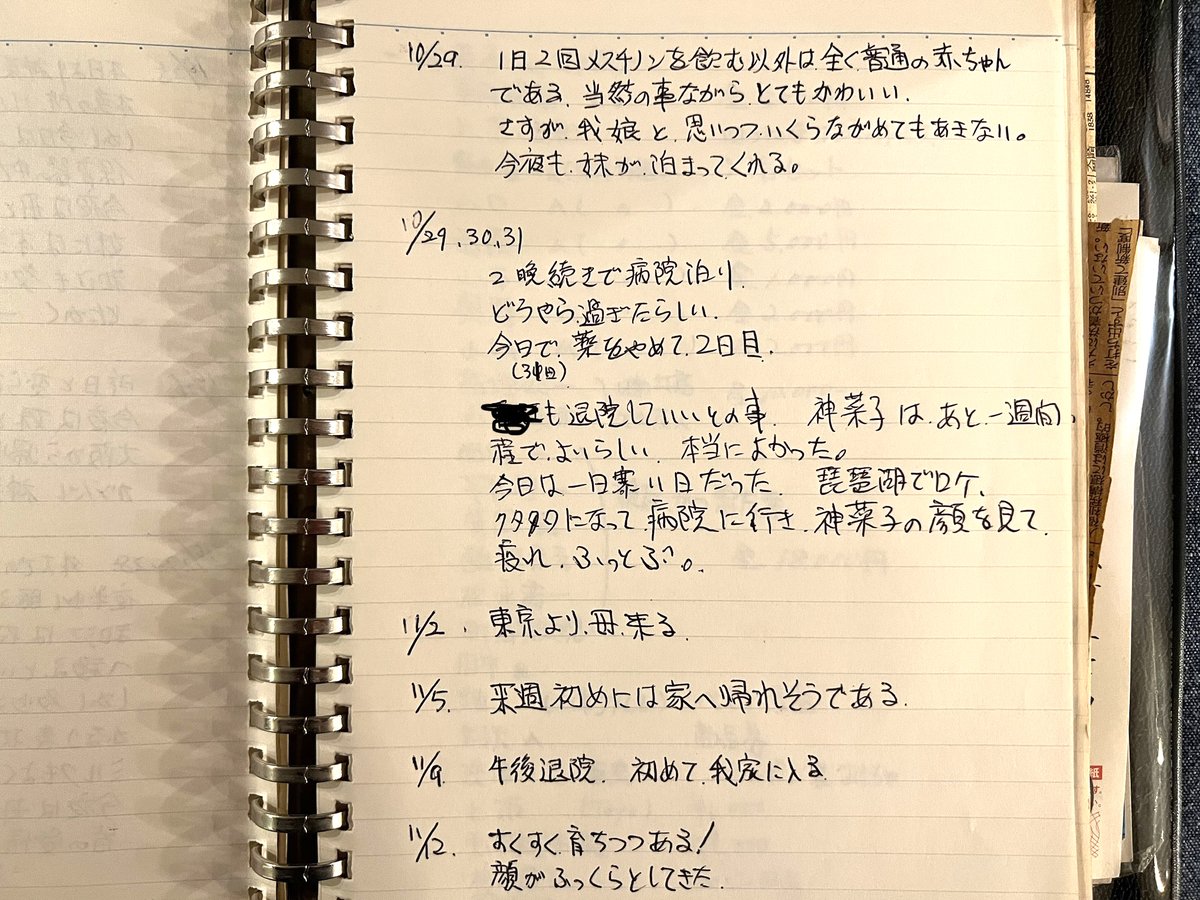 10/29. 1日2回メスチノンを飲む以外は、全く普通の赤ちゃん
である、当然の事ながら、とてもかわいい、
さすが、我娘と、思いつつ、いくらながめてもあきない。
今夜も、妹が、泊まってくれる。
10/29、30、31
2晩続きで病院泊り、
どうやら、過ぎたらしい、
今日で、薬をやめて、2日目、
も退院していいとの事、神菜子は、あと、一週間、
程で、よいらしい、本当によかった。
今日は一日寒い日だった、琵琶湖でロケ、
クタクタになって、病院に行き、神菜子の顔を見て、
疲れ、ふっとぶ。
11/2. 東京より、母、来る、
11/5. 来週初めには家へ帰れそうである、
11/9. 午後退院、初めて、我家に入る、
11/12. すくすく、育ちつつある!
顔がふっくらとしてきた、